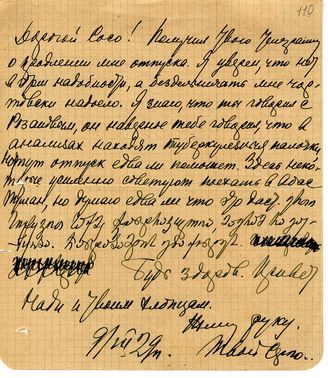 110
Дорогой Сосо! Получил твою телеграмму
о продлении мне отпуска. Я уверен, что нет
в этом надобности, а бездельничать мне чер-
товски надоело. Я знаю, что ты говорил с
Розановым, он наверное тебе говорил, что в
анализах находят туберкулезные палочки,
но тут отпуск едва ли поможет. Здесь неко-
торые усиленно советуют поехать в Абас
Туман, но думаю едва ли что это даст.
Будь здоров. Привет
Наде и твоим хлопцам.
Жму руку.
9/VII 29 г. Твой Серго.